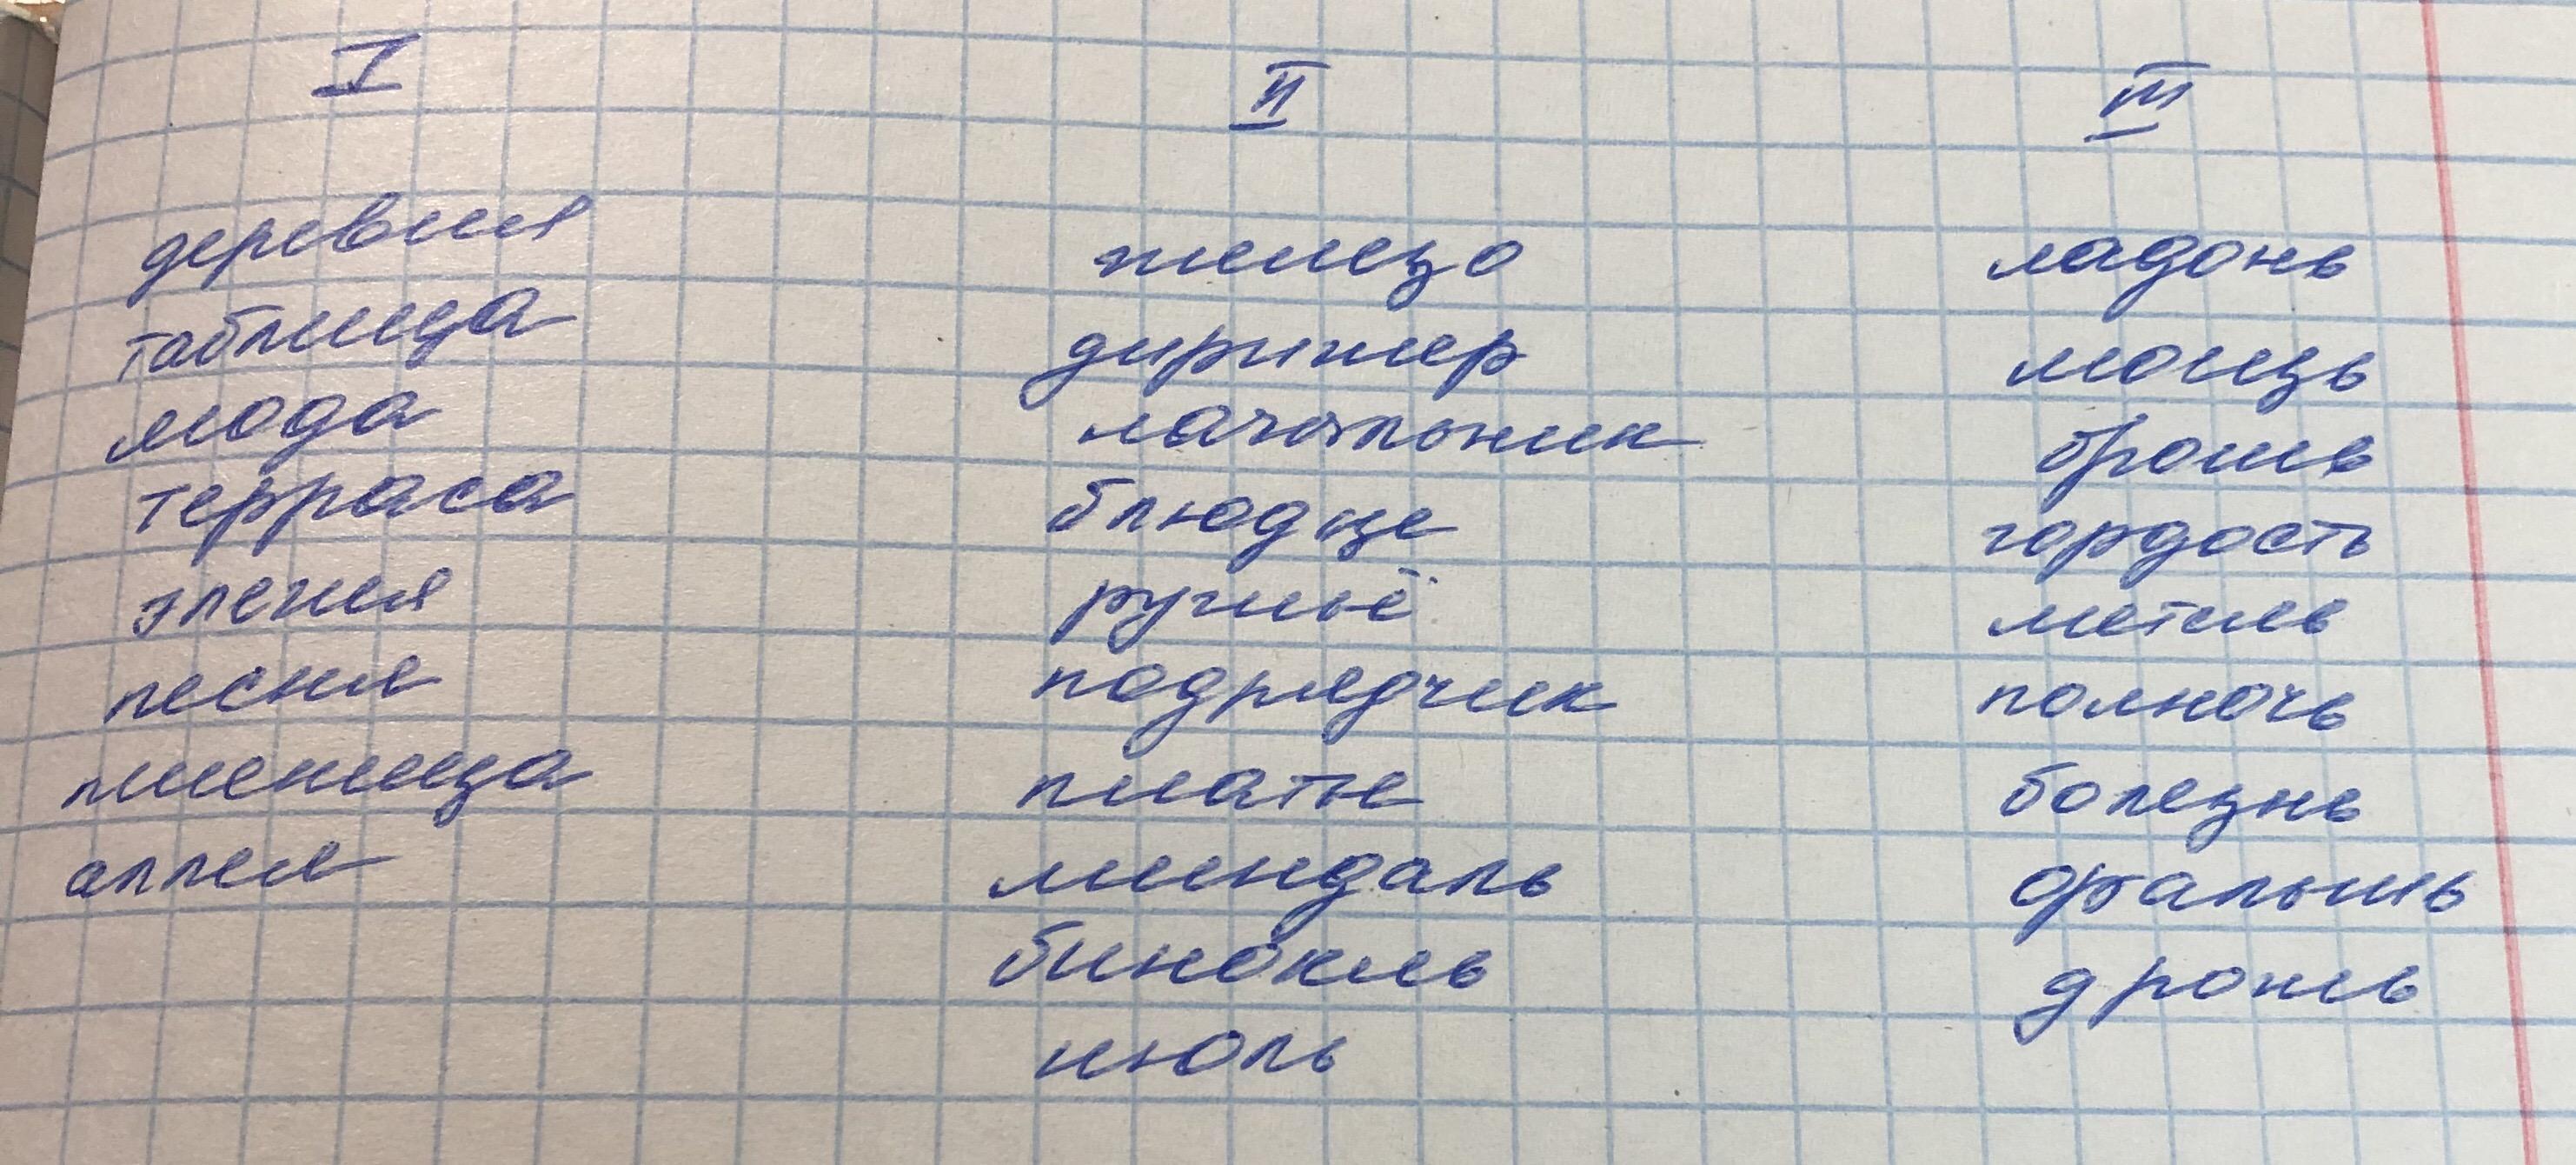 I
деревня
таблица
мода
терраса
элегия
песня
пшеница
аллея
II
железо
дирижер
начальник
блюдце
ружьё
подрядчик
платье
миндаль
бинокль
июль
III
ладонь
мощь
брошь
гордость
метель
полночь
болезнь
фальшь
дрожь